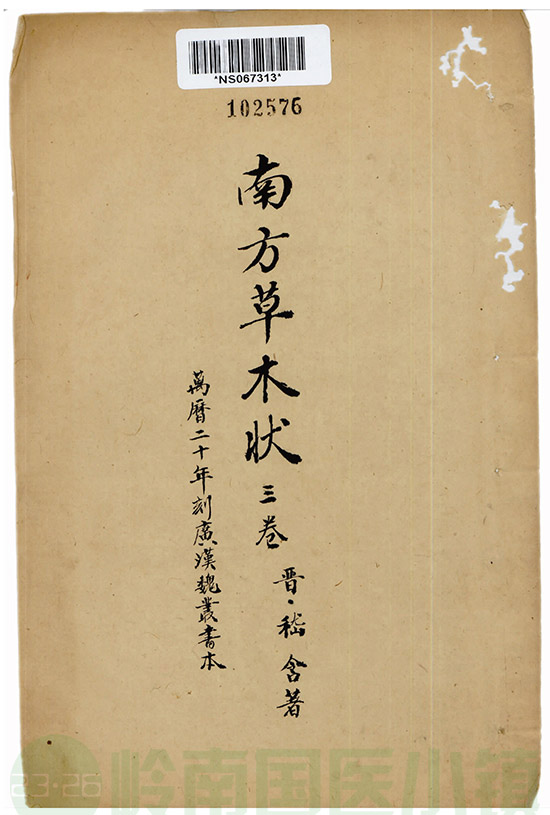 *NS067313*
102576
南方草木状三卷
晋·嵇含著
萬曆二十年刻廣漢魏叢書本
23·26
岭南国医小镇